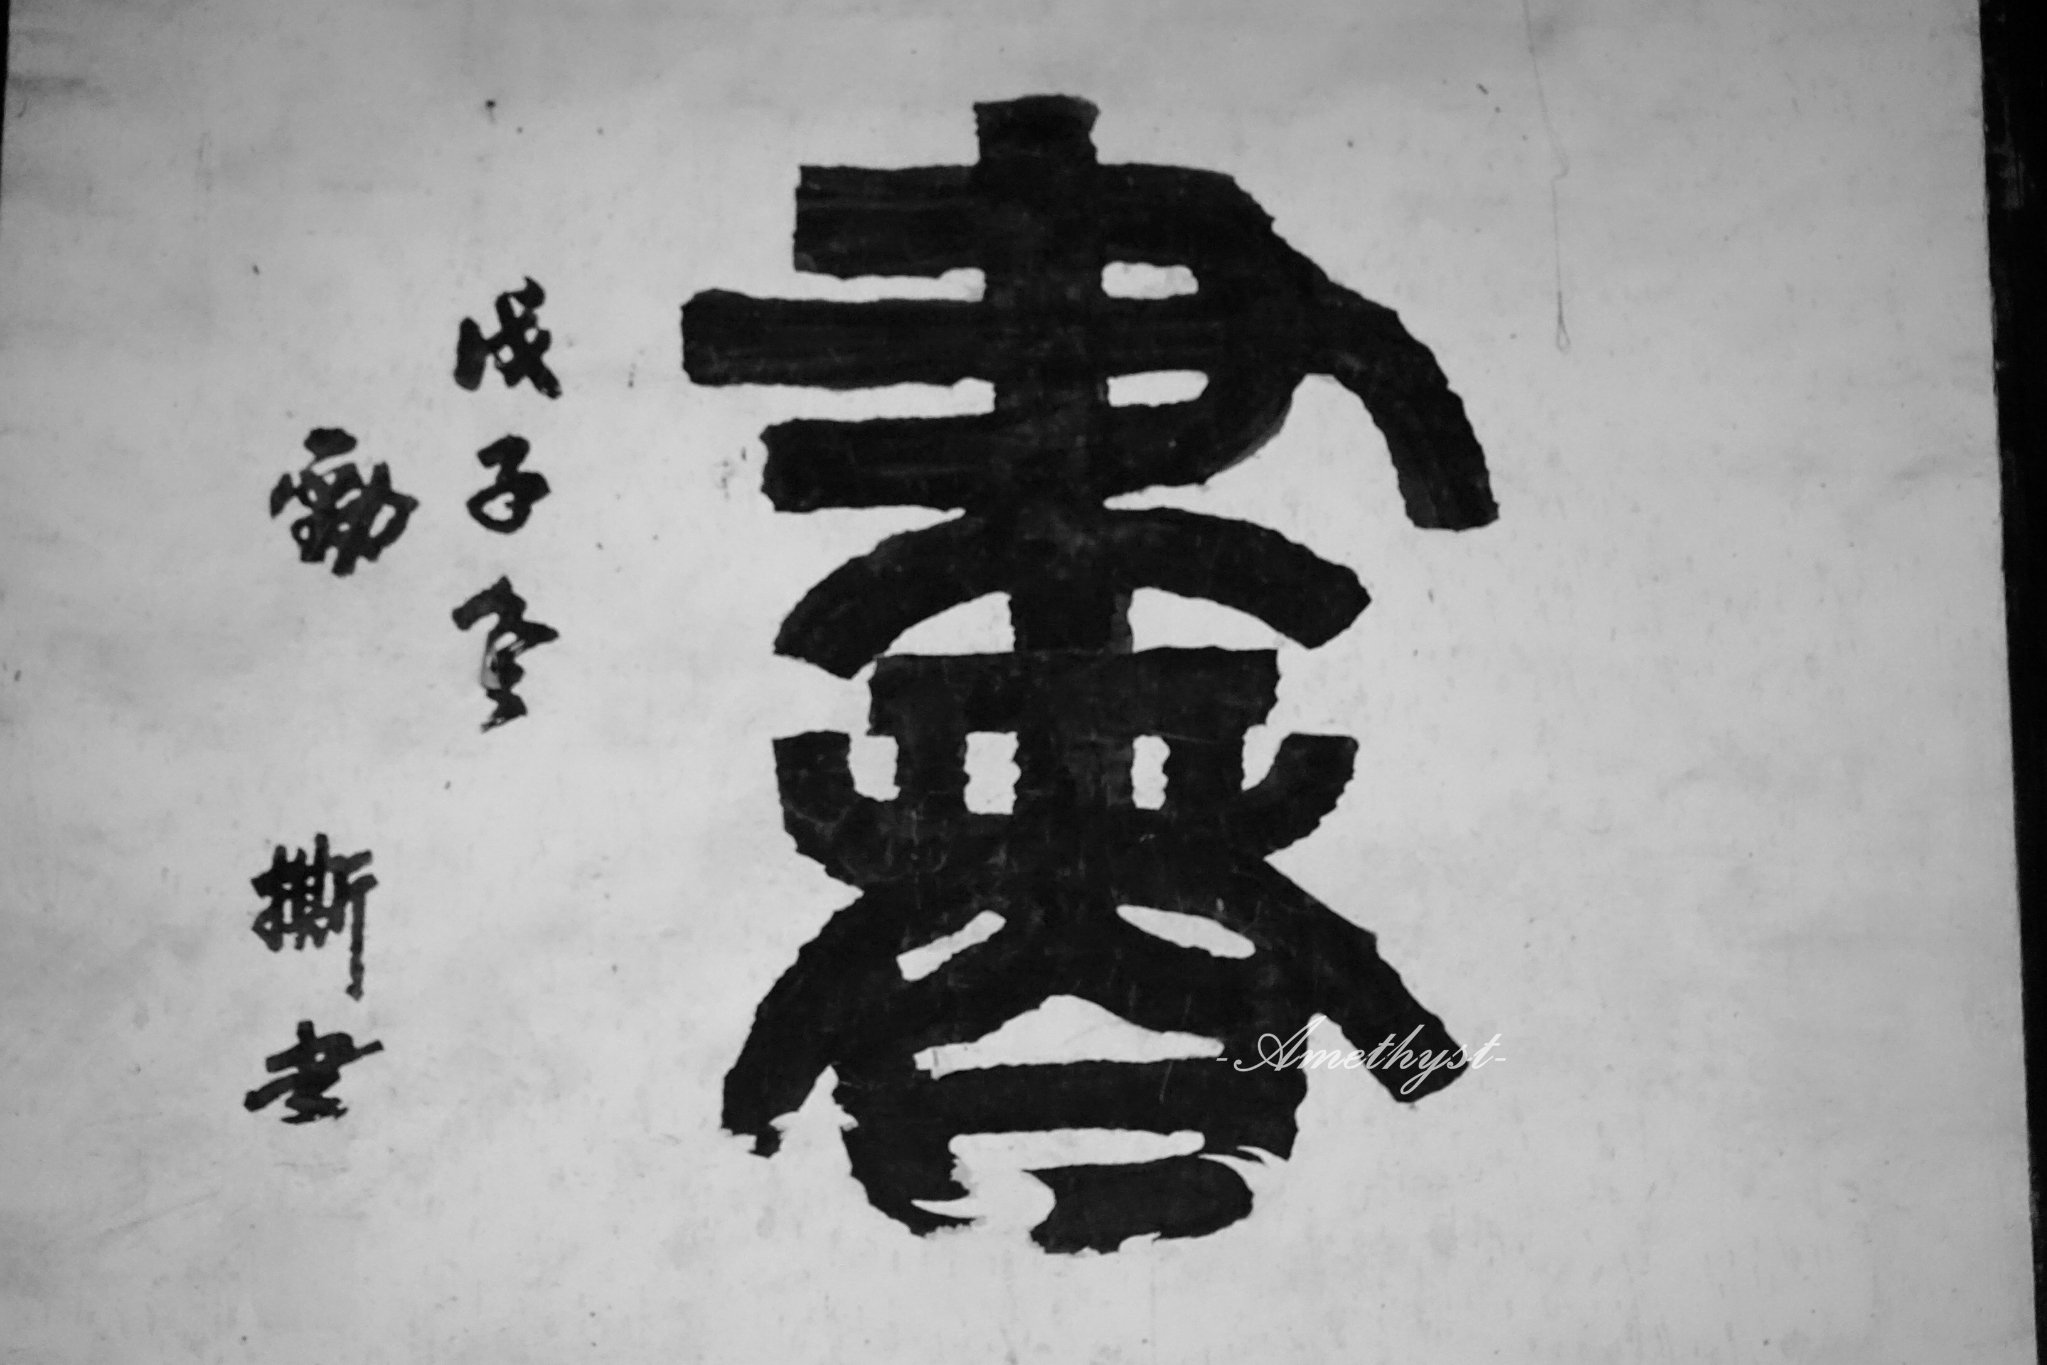 書
戊子
撕書
-Amethyst-